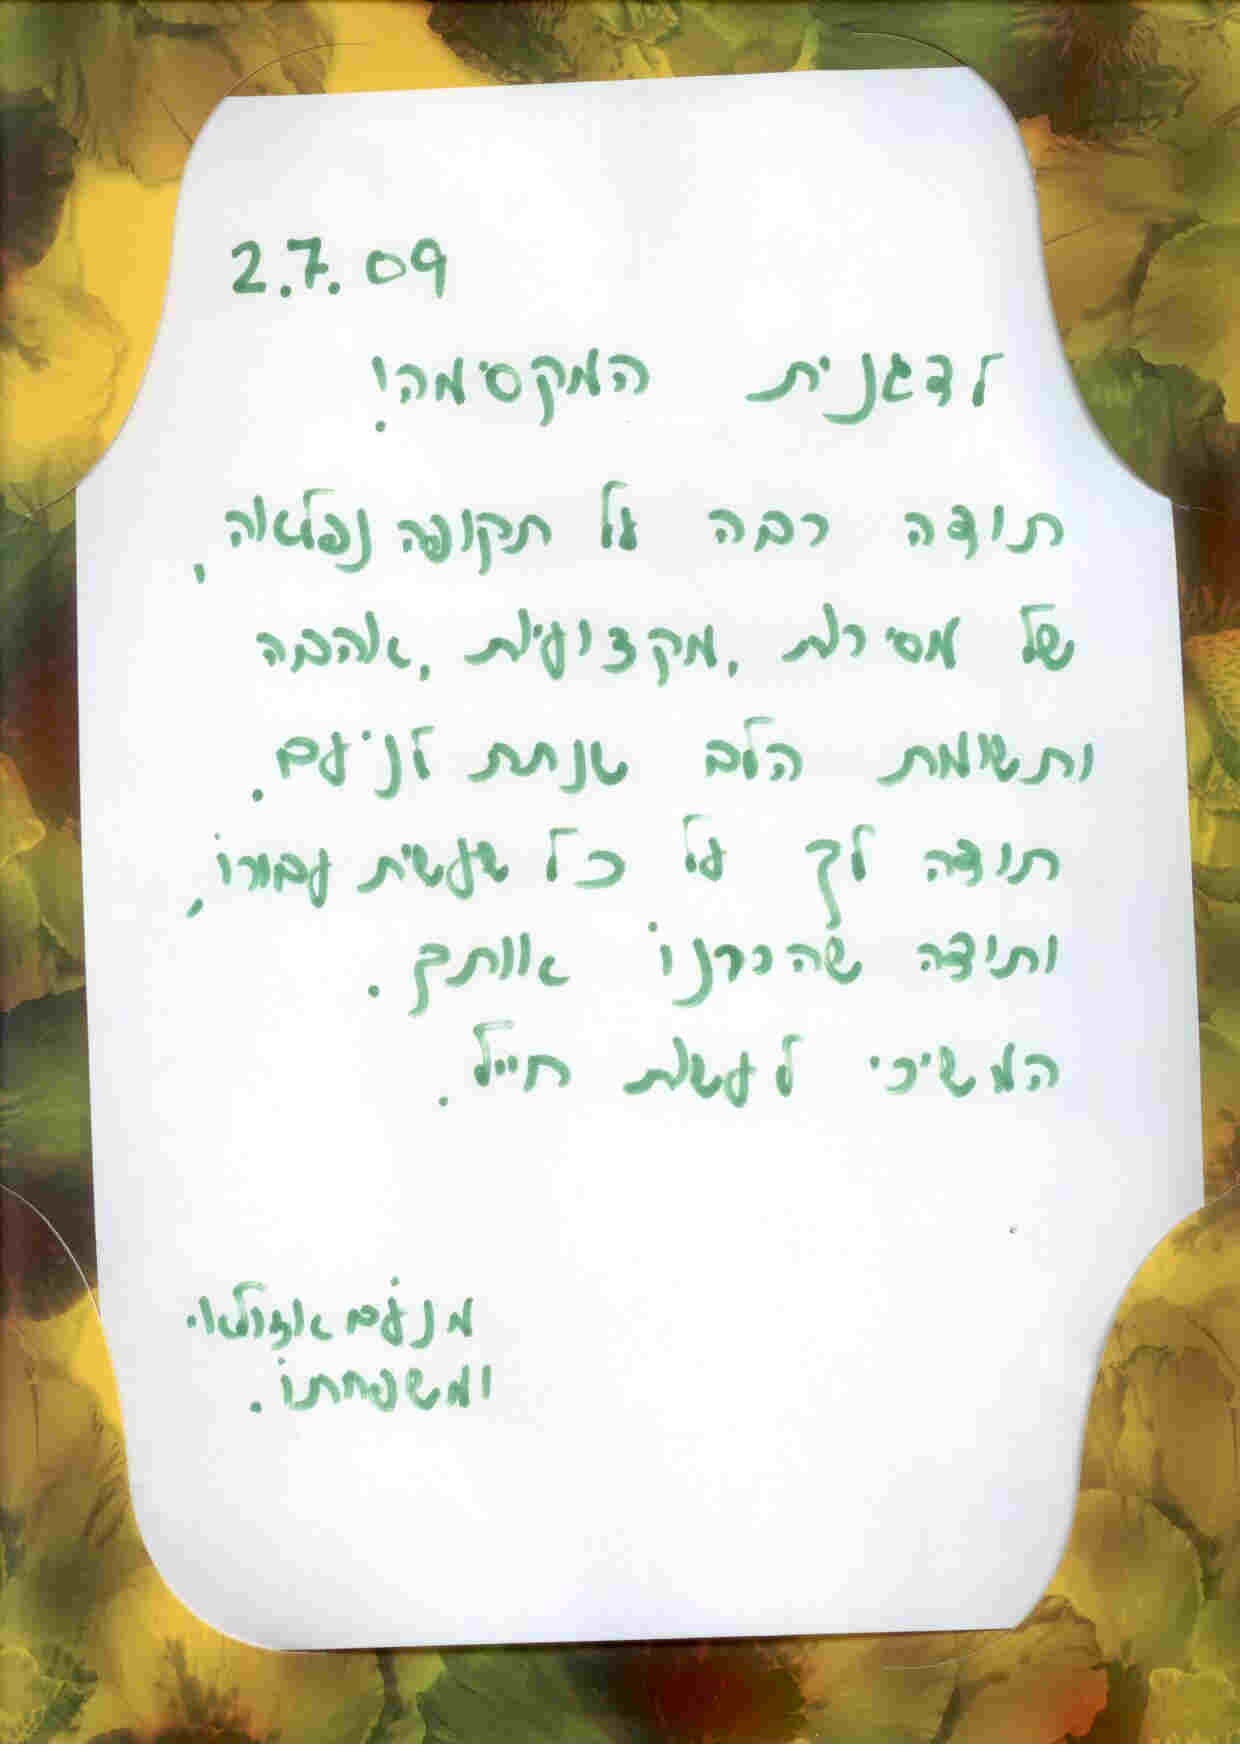 2.7.09
לדגנית המקסימה!
תודה רבה על תקופה נפלאה,
של מסירות, מקצועיות, אהבה
ותשומת הלב שנתת לנועם.
תודה לך על כל שעשית עבורו,
ותודה שהכרנו אותך.
המשיכי לעשות חייל.
מנועם אזולאי
ומשפחתו.